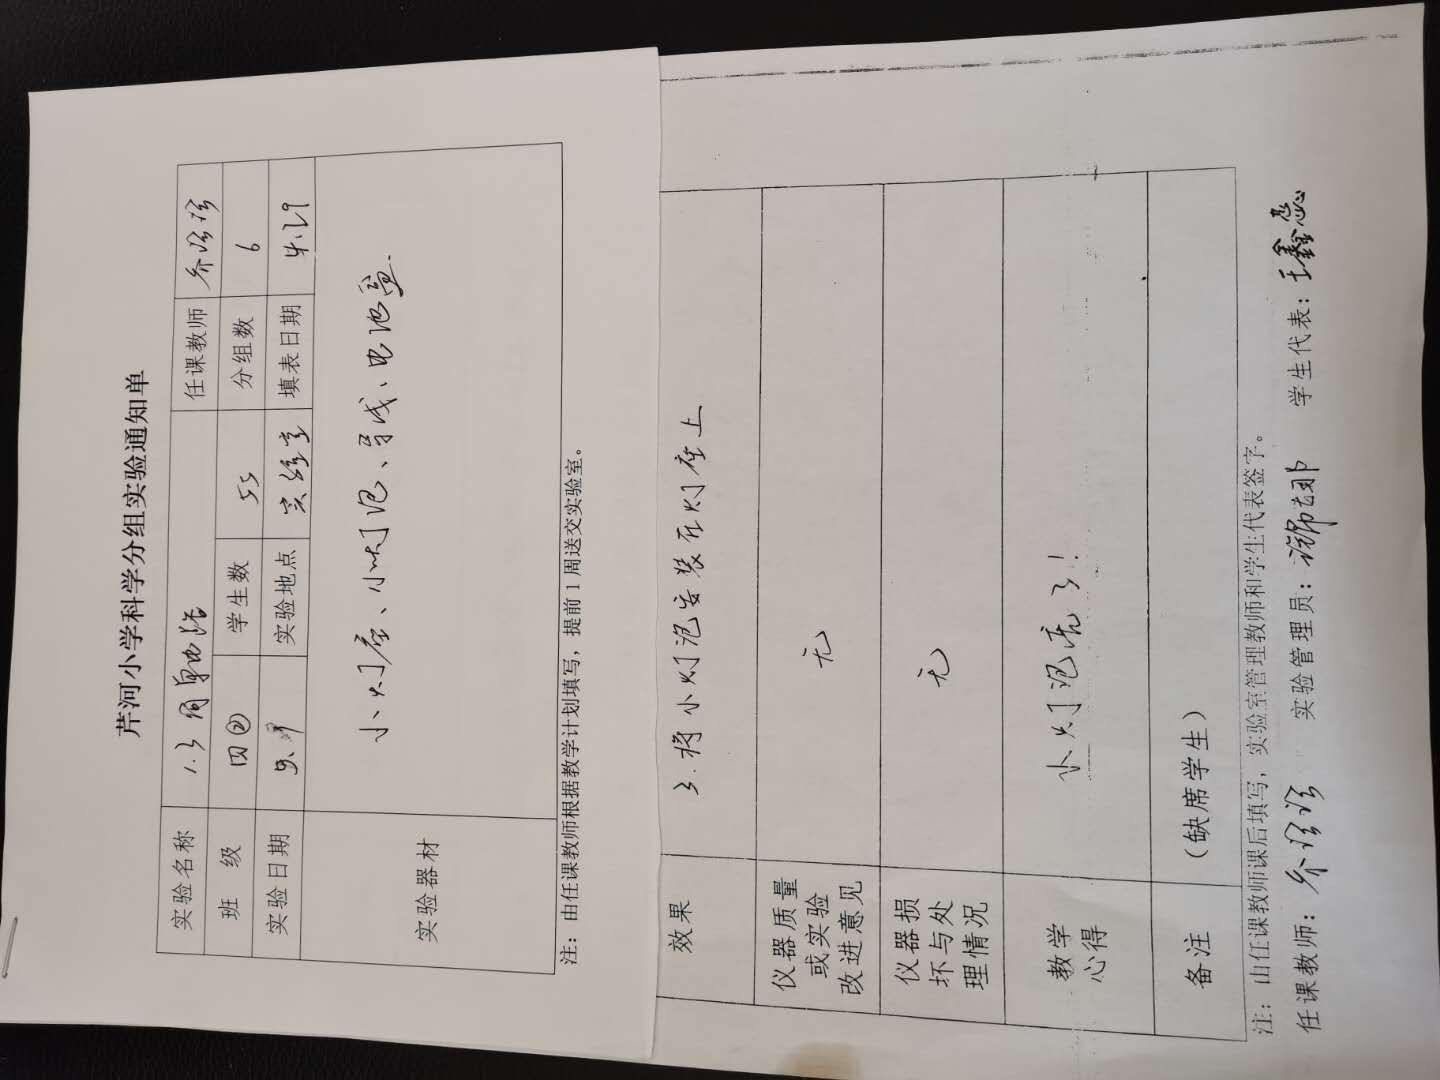 芹河小学科学分组实验通知单
实验名称 1.3 简单电路 任课教师
班 级 四② 学生数 55 分组数 6
实验日期 5.9 实验地点 实验室 填表日期 4.29
实验器材 小灯座、小灯泡、导线、电池盒.
注：由任课教师根据教学计划填写，提前1周送交实验室。
效果 3.将小灯泡安装在灯座上
仪器质量
或实验
改进意见
无
仪器损
坏与处
理情况
无
教学
心得
小灯泡亮了！
备注 （缺席学生）
注：由任课教师课后填写，实验室管理教师和学生代表签字。
任课教师： 实验管理员： 学生代表：王鑫蕊